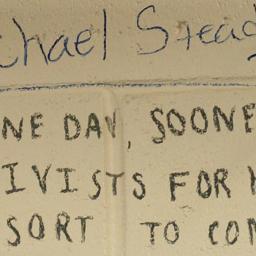 chael Stead
NE DAY, SOONE
IVISTS FOR
SORT TO CON